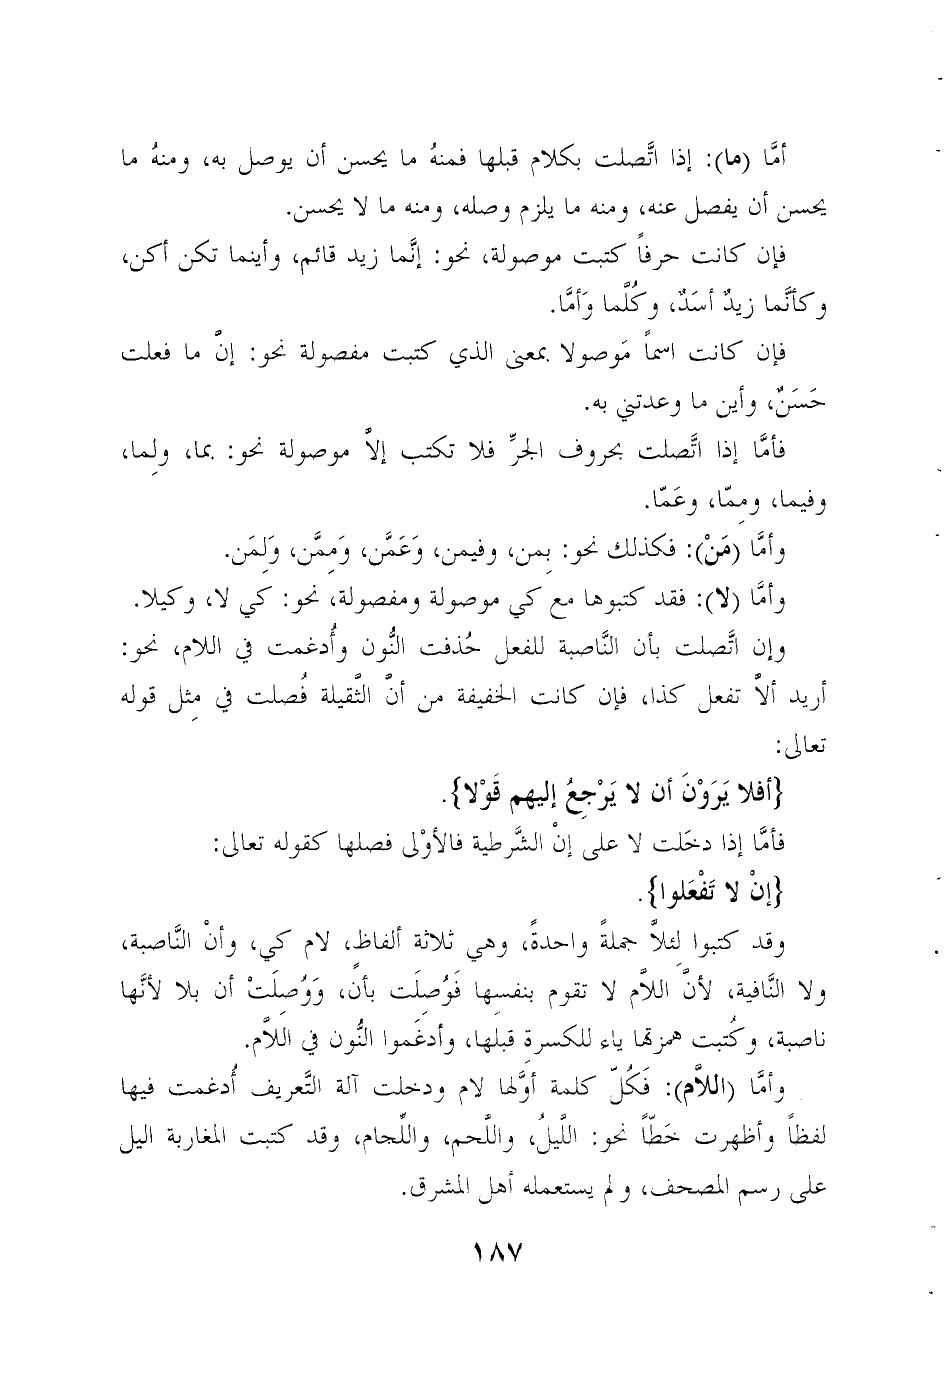 أمَّا (ما): إذا اتَّصلت بكلام قبلها فمنهُ ما يحسن أن يوصل به، ومنهُ ما
يحسن أن يفصل عنه، ومنه ما يلزم وصله، ومنه ما لا يحسن.
فإن كانت حرفاً كتبت موصولة، نحو: إنَّما زيد قائم، وأينما تكن أكن،
وكأنَّما زيدٌ أسَدٌ، وكُلَّما وَأمَّا.
فإن كانت اسماً مَوصولا بمعنى الذي كتبت مفصولة نحو: إنَّ ما فعلت
حَسَنٌ، وأين ما وعدتني به.
فأمَّا إذا اتَّصلت بحروف الجرِّ فلا تكتب إلاَّ موصولة نحو: بما، ولِما،
وفيما، ومِمّا، وعَمّا.
وأمَّا (مَنْ): فكذلك نحو: بِمن، وفيمن، وَعَمَّن، وَمِمَّن، وَلِمَن.
وأمَّا (لا): فقد كتبوها مع كي موصولة ومفصولة، نحو: كي لا، وكيلا.
وإن اتَّصلت بأن النَّاصبة للفعل حُذفت النُّون وأُدغمت في اللام، نحو:
أريد ألاَّ تفعل كذا، فإن كانت الخفيفة من أنَّ الثَّقيلة فُصلت في مِثل قوله
تعالى:
{أفلا يَرَوْنَ أن لا يَرْجِعُ إليهم قَوْلا}.
فأمَّا إذا دخَلت لا على إنْ الشَّرطية فالأوْلى فصلها كقوله تعالى:
{إنْ لا تَفْعَلوا}.
وقد كتبوا لِئلاَّ جملةً واحدةً، وهي ثلاثة ألفاظٍ، لام كي، وأنْ النَّاصبة،
ولا النَّافية، لأنَّ اللاَّم لا تقوم بنفسِها فَوُصِلَت بأن، وَوُصِلَتْ أن بلا لأنَّها
ناصبة، وكُتبت همزتها ياء للكسرة قبلها، وأدغَموا النُّون في اللاَّم.
وأمَّا (اللاَّم): فَكُلّ كلمة أوَّلها لام ودخلت آلة التَّعريف أُدغمت فيها
لفظاً وأظهرت خَطّاً نحو: اللَّيلُ، واللَّحم، واللِّجام، وقد كتبت المغاربة اليل
على رسم المصحف، ولم يستعمله أهل المشرق.
١٨٧